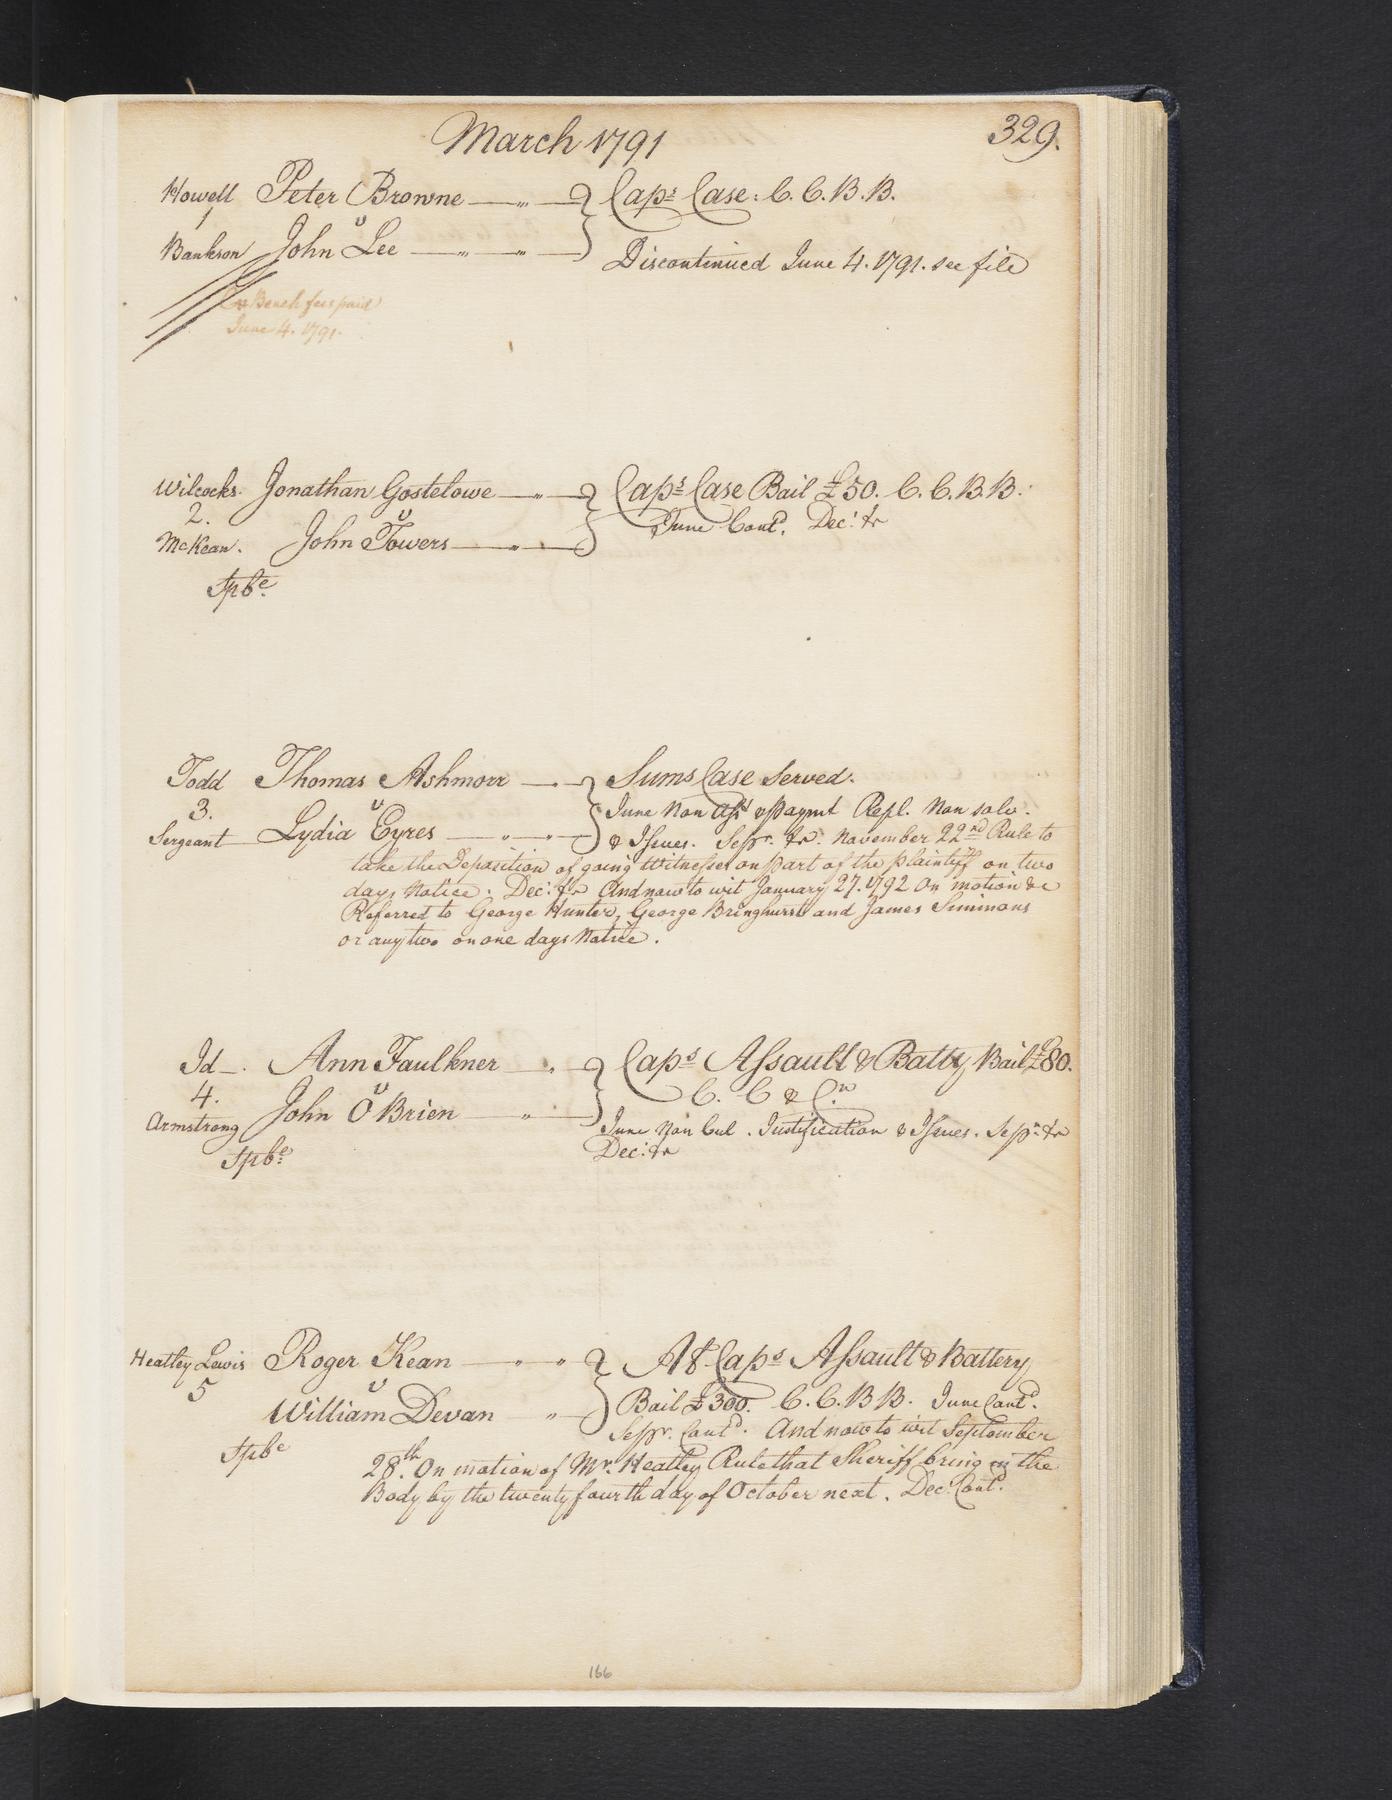 March 1791
329.
Howell Peter Browne Caps Case: C. C. B. B.
1 v
Bankson John Lee Discontinued June 4. 1791. see file
Bench fees paid
June 4. 1791.
Wilcocks. Jonathan Gostelowe Caps Case Bail £50. C. C. B. B.
2. v June Contd. Decr. &c
McKean. John Towers
Todd Thomas Ashmorr Sums Case Served.
3. v June Non Asst & Paymt Repl. Non solv.
Sergeant Lydia Eyres & Issues. Sepr. &c. November 22nd Rule to
take the Deposition of going Witnesses on part of the plaintiff on two
days Notice. Decr. &c And now to wit January 27. 1792 On motion &c
Referred to George Hunter, George Bringhurst and James Simmons
or any two on one days Notice.
Id. Ann Faulkner Caps Assault & Batty Bail £80.
4. v C. C &
Armstrong John O'Brien June Non Cul. Justification & Issues. Sepr. &c
Decr. &c
Heatley Lewis Roger Kean Caps Assault & Battery
5 v Bail £300. C. C. B B. June Contd.
William Devan Sepr. Contd. And now to wit September
28th. On motion of Mr. Heatley Rule that Sheriff bring in the
Body by the twenty fourth day of October next. Dec. Contd.
166